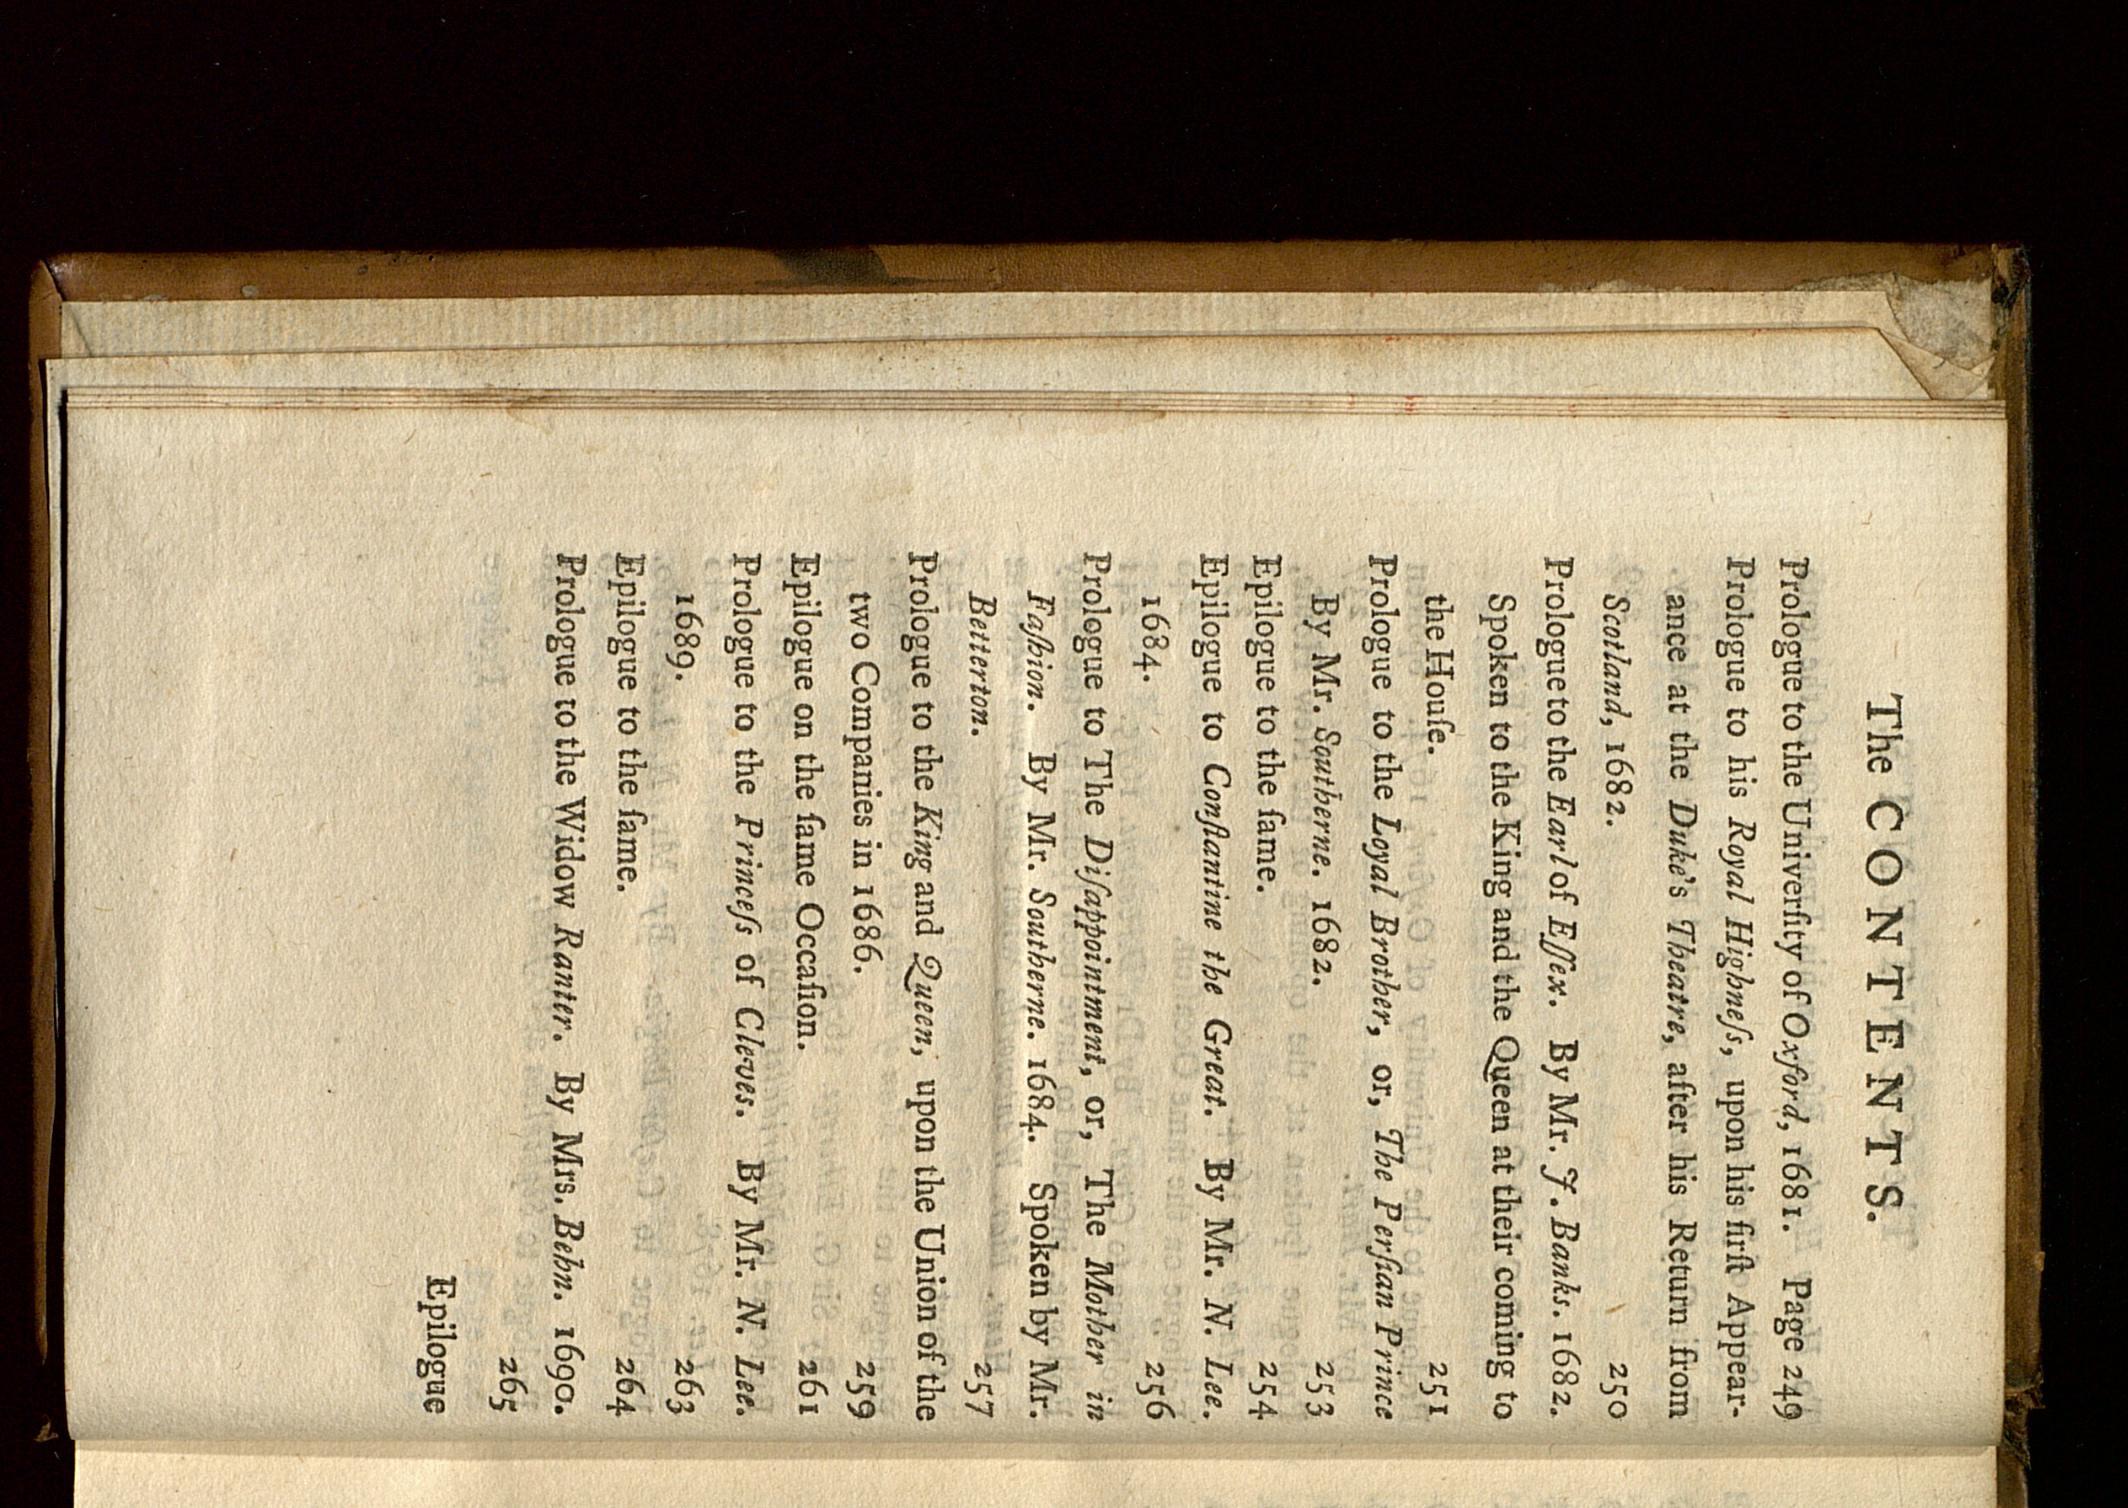 The CONTENTS.
Prologue to the Univerſity of Oxford, 1681. Page 249
Prologue to his Royal Highneſs, upon his firſt Appear-
ance at the Duke's Theatre, after his Return from
Scotland, 1682. 250
Prologue to the Earl of Eſſex. By Mr. J. Banks. 1682.
Spoken to the King and the Queen at their coming to
the Houſe. 251
Prologue to the Loyal Brother, or, The Perſian Prince
By Mr. Southerne. 1682. 253
Epilogue to the ſame. 254
Epilogue to Conſtantine the Great. By Mr. N. Lee.
1684. 256
Prologue to The Diſappointment, or, The Mother in
Faſhion. By Mr. Southerne. 1684. Spoken by Mr.
Betterton. 257
Prologue to the King and Queen, upon the Union of the
two Companies in 1686. 259
Epilogue on the ſame Occaſion. 261
Prologue to the Princeſs of Cleves. By Mr. N. Lee.
1689. 263
Epilogue to the ſame. 264
Prologue to the Widow Ranter. By Mrs. Behn. 1690.
265
Epilogue